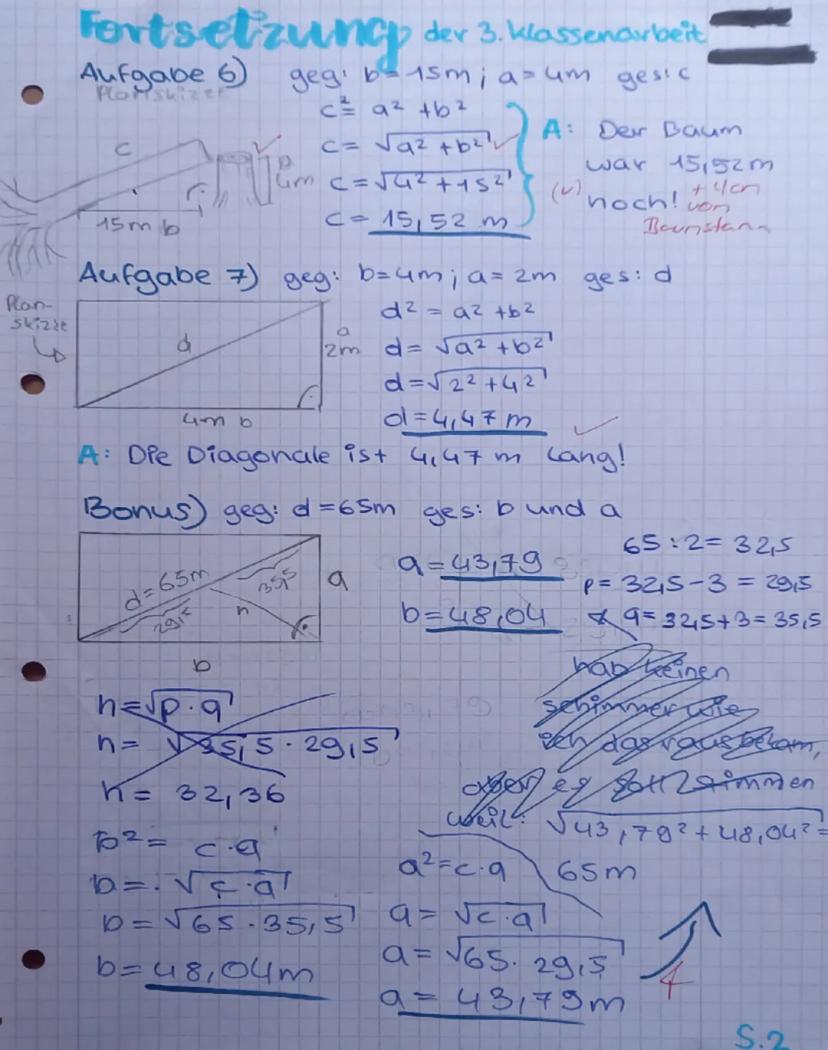 Fortsetzung der 3. Klassenarbeit
Aufgabe 6) geg: b=15m; a=4m ges: c
Planskizze
c
a
4m
15m b
c²= a²+b²
c= √a²+b²
c=√4²+15²
c= 15,52 m
A: Der Baum
war 15,52m
noch!
(✓)
+4m
vom
Baumstamm
Aufgabe 7) geg: b=4m; a=2m ges: d
Plan-
skizze
d
a
2m
4m b
d² = a²+b²
d= √a²+b²
d=√2²+4²
d=4,47 m
A: Die Diagonale ist 4,47 m lang!
Bonus) geg: d=65m ges: b und a
d=65m
35,5
29,5
h
a
b
a=43,79
b=48,04
65:2= 32,5
p= 32,5-3 = 29,5
q= 32,5+3= 35,5
hab keinen
schimmer wie
ich das rausbekam,
aber es soll stimmen
weil: √43,79²+48,04²=
65m
h=√p·q
h= √35,5·29,5
h= 32,36
b²= c·q
b= √c·q
b=√65·35,5
b=48,04m
a²=c·q
a= √c·q
a= √65·29,5
a= 43,79m
4
S.2